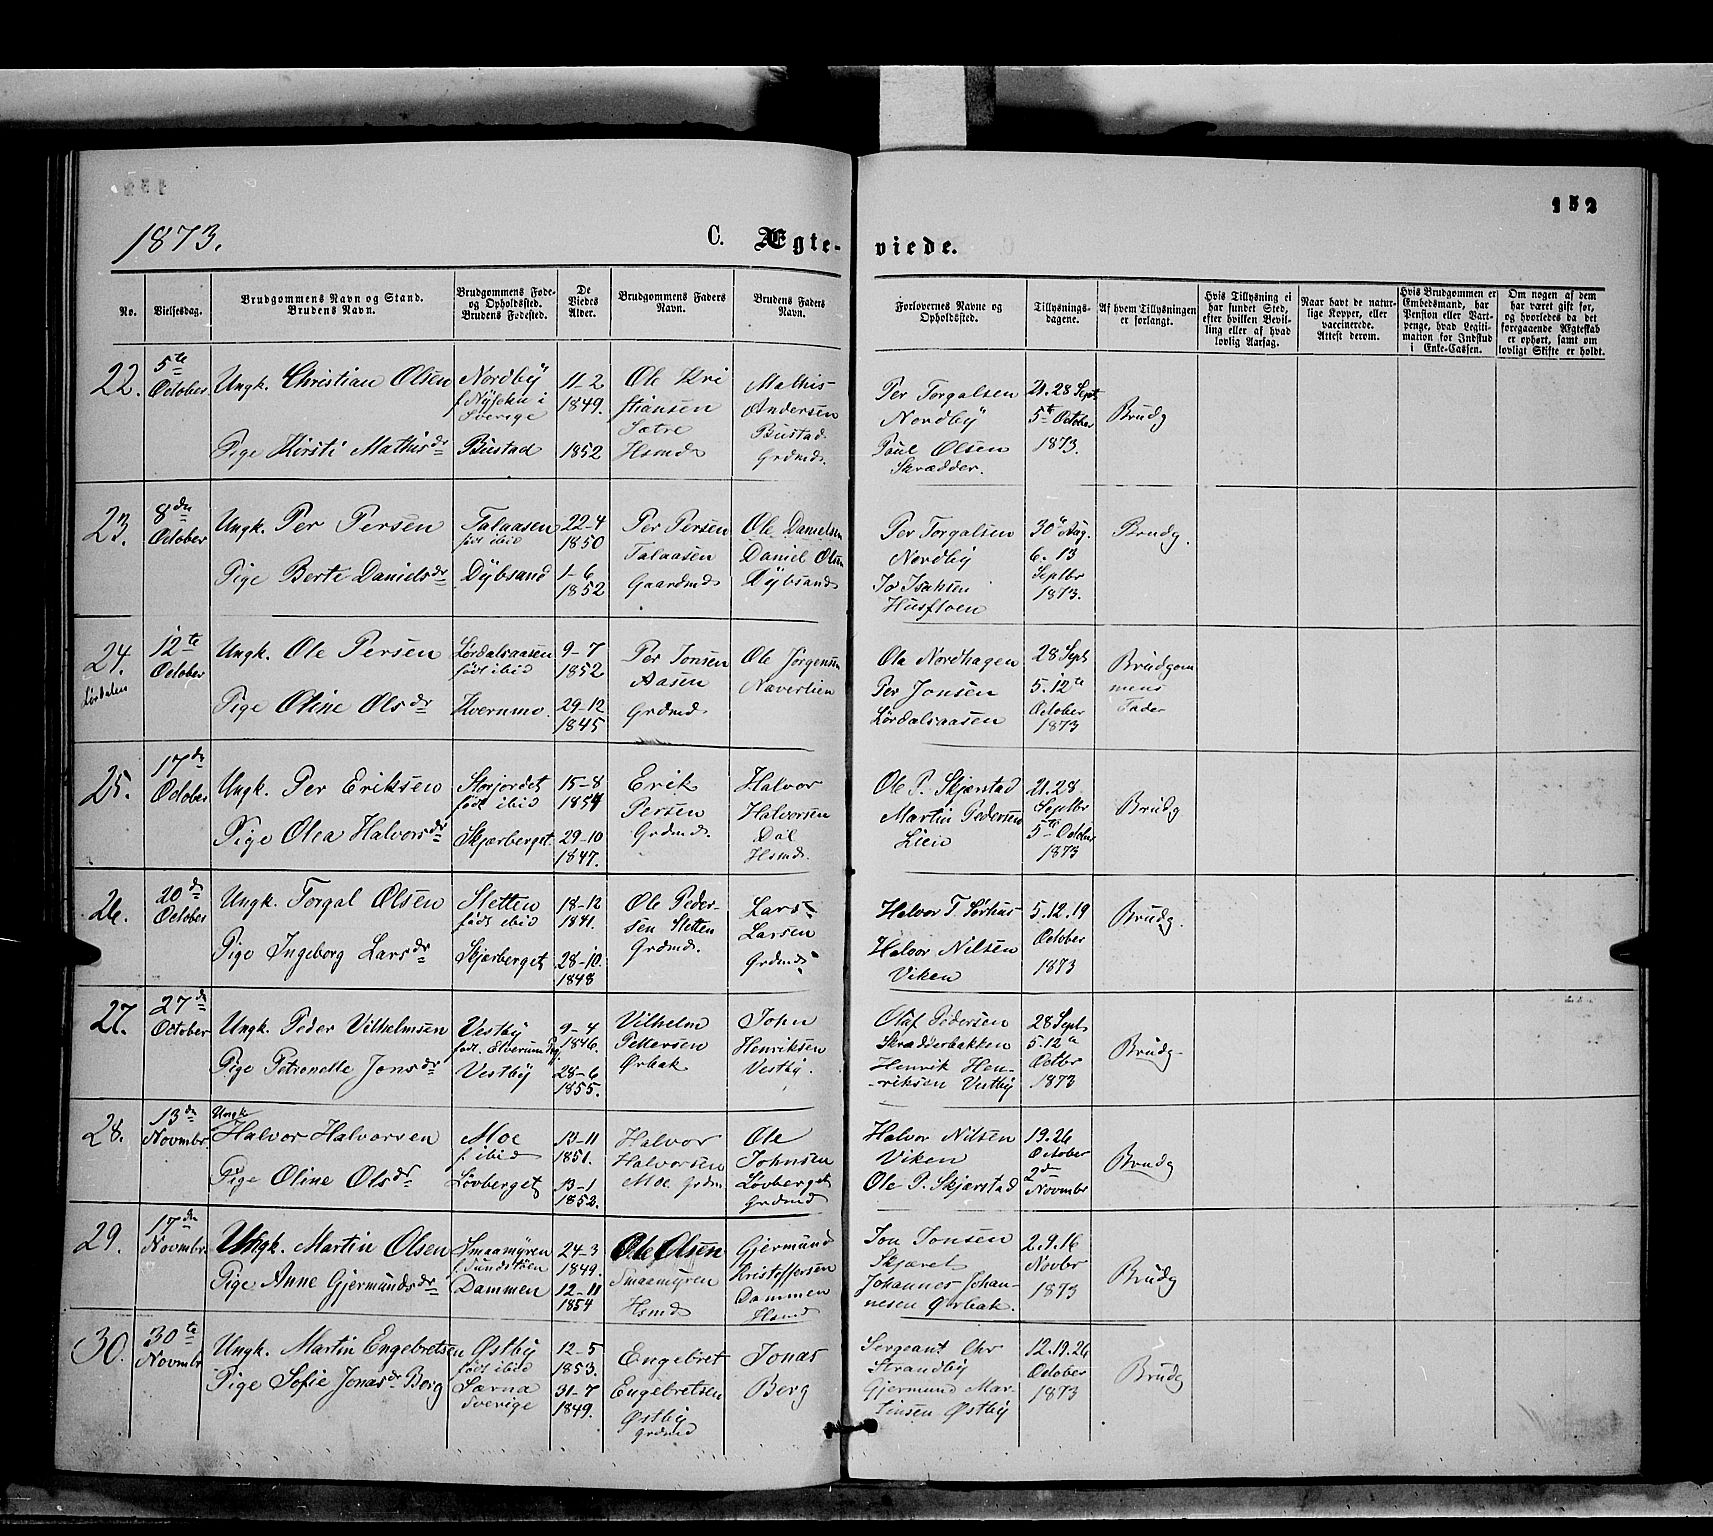 152
1873.
C. Ægte-
viede.
No.
Vielsesdag.
Brudgommens Navn og Stand.
Brudens Navn.
Brudgommens Føde-
og Opholdssted.
Brudens Fødested.
De
Viedes
Alder.
Brudgommens Faders
Navn.
Brudens Faders
Navn.
Forlovernes Navne og
Opholdssted.
Tillysnings-
dagene.
Af hvem Tillysningen
er forlangt.
Hvis Tillysning ei
har fundet Sted,
efter hvilken Bevil-
ling eller af hvad
lovlig Aarsag.
Naar havt de natur-
lige Kopper, eller
vaccinerede.
Attest derom.
Hvis Brudgommen er
Embedsmand, har
Pension eller Vart-
penge, hvad Legiti-
mation for Indskud
i Enke-Cassen.
Om nogen af dem
har været gift før,
og hvorledes da det
foregaaende Ægteskab
er ophørt, samt om
lovligt Skifte er holdt.
22.
5te
October
Ungk. Christian Olsen
Pige Kirsti Mathisdr
Nordby
Sverige
Bustad
11-2
1849.
1852
Ole Kri
stiansen
Sætre
Hsmd
Mathis
Andersen
Bustad
Grdmd.
Per Torgalsen
Nordby
Poul Olsen
Skrædder.
21. 28 Sept
5te October
1873.
Brudg
23.
8de
October
Ungk. Per Persen
Pige Berte Danielsdr
Talaasen
født ibid
Dybsand
22-4
1850
1-6
1852
Per Persen
Talaasen
Gaardmd
Ole Danielsen
Daniel Olsen
Dybsand
Per Torgalsen
Nordby
Jo Isaksen
Husfloen
30 Aug.
6. 13
Septbr
1873.
Brudg.
24.
Lørdalen
12te
October
Ungk. Ole Persen
Pige Oline Olsdr
Lørdalsaasen
født ibid
Kvernmo.
9-7
1852
29-12
1845
Per Jonsen
Aasen
Grdmd.
Ole Jørgensen
Naverlien
Ola Nordhagen
Per Jonsen
Lørdalsaasen
28 Sept
5. 12te
October
1873
Brudgom
mens
Fader
25.
17de
October
Ungk. Per Eriksen
Pige Olea Halvorsdr
Storjordet
født ibid
Skjærberget.
15-8
1854
29-10
1847.
Erik
Persen
Grdmd.
Halvor
Halvorsen
Dal
Hsmd.
Ole P. Skjærstad
Martin Pedersen
Lien
21. 28
Septbr
5te October
1873
Brudg
26.
20de
October
Ungk. Torgal Olsen
Pige Ingeborg Larsdr
Sletten
født ibid
Skjærberget
18-12
1841.
28-10.
1848
Ole Peder-
sen Sletten
Grdmd.
Lars
Larsen
Grdmd
Halvor T. Sørhus
Halvor Nilsen
Viken
5. 12. 19
October
1873
Brudg.
27.
27de
October
Ungk. Peder Vilhelmsen
Pige Petronelle Jonsdr
Vestby
født. Elverum Pgj
Vestby
9-4
1846.
28-6
1855.
Vilhelm
Pettersen
Ørbak
John
Henriksen
Vestby.
Olaf Pedersen
Skrædderbakken
Henrik Hen-
-riksen Vestby
28 Sept
5. 12te
Octbr
1873
Brudg-
28.
13de
Novmbr.
Ungk
Halvor Halvorsen
Pige Oline Olsdr
Moe
f. ibid
Løvberget
13-11
1851.
13-1
1852.
Halvor
Halvorsen
Moe Grdm
Ole
Johnsen
Løvberget
Grdmd
Halvor Nilsen
Viken
Ole P. Skjærstad
19. 26
October
2de
Novmbr
Brudg
29.
17de
Novmbr.
Ungk. Martin Olsen
Pige Anne Gjermundsdr
Smaamyren
f. Sundstøen
Dammen
24-3
1849.
12-11
1854
Ole Olsen
Smaamyren
Hsmd
Gjermund
Kristoffersen
Dammen
Hsmd
Jon Jonsen
Skjæret
Johannes Johan-
nesen Ørbak.
2. 9. 16
Novbr
1873
Brudg
30.
30te
Novmbr
Ungk. Martin Engebretsen
Pige Sofie Jonasdr Berg
Østby
født ibid
Særna
Sverige
12-5
1853.
31-7
1849.
Engebret
Engebretsen
Østby
Grdmd
Jonas
Berg
Sergeant Chr
Strandby
Gjermund Mar-
tinsen Østby
12. 19. 26
October
1873
Brudg